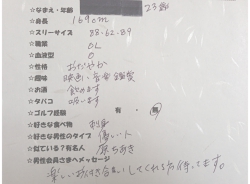 ☆なまえ・年齢 23歳
☆身長 169cm
☆スリーサイズ 88-62-89
☆職業 OL
☆血液型 O
☆性格 おだやか
☆趣味 映画・音楽鑑賞
☆お酒 飲めます
☆タバコ 吸います
☆ゴルフ経験 有・無
☆好きな食べ物 刹身
☆好きな男性のタイプ 優しい人
☆似ている?有名人 原ちあき
☆男性会員さまへメッセージ
楽しいお付き合いしてくれる方待ってます。